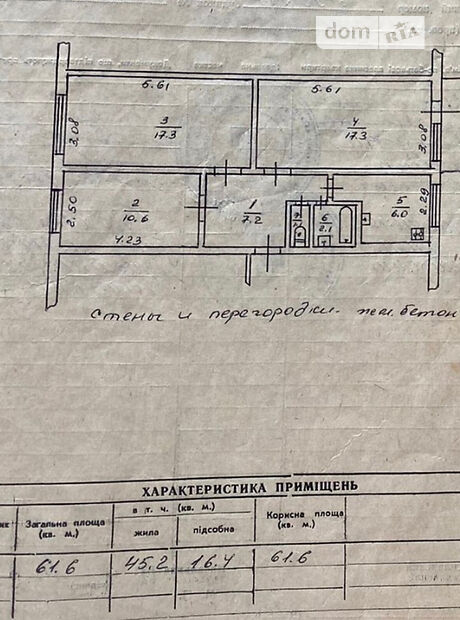 dom RIA
5.61
5.61
3
17.3
4
17.3
3,08
3,08
2
10.6
1
7.2
5
6.0
6
2.1
7
2.50
2,29
4.23
стены и перегородки - жел. бетон
ХАРАКТЕРИСТИКА ПРИМІЩЕНЬ
Загальна площа (кв. м.)
в т. ч. (кв. м.)
жила
підсобна
Корисна площа (кв. м.)
61.6
45.2
16.4
61.6